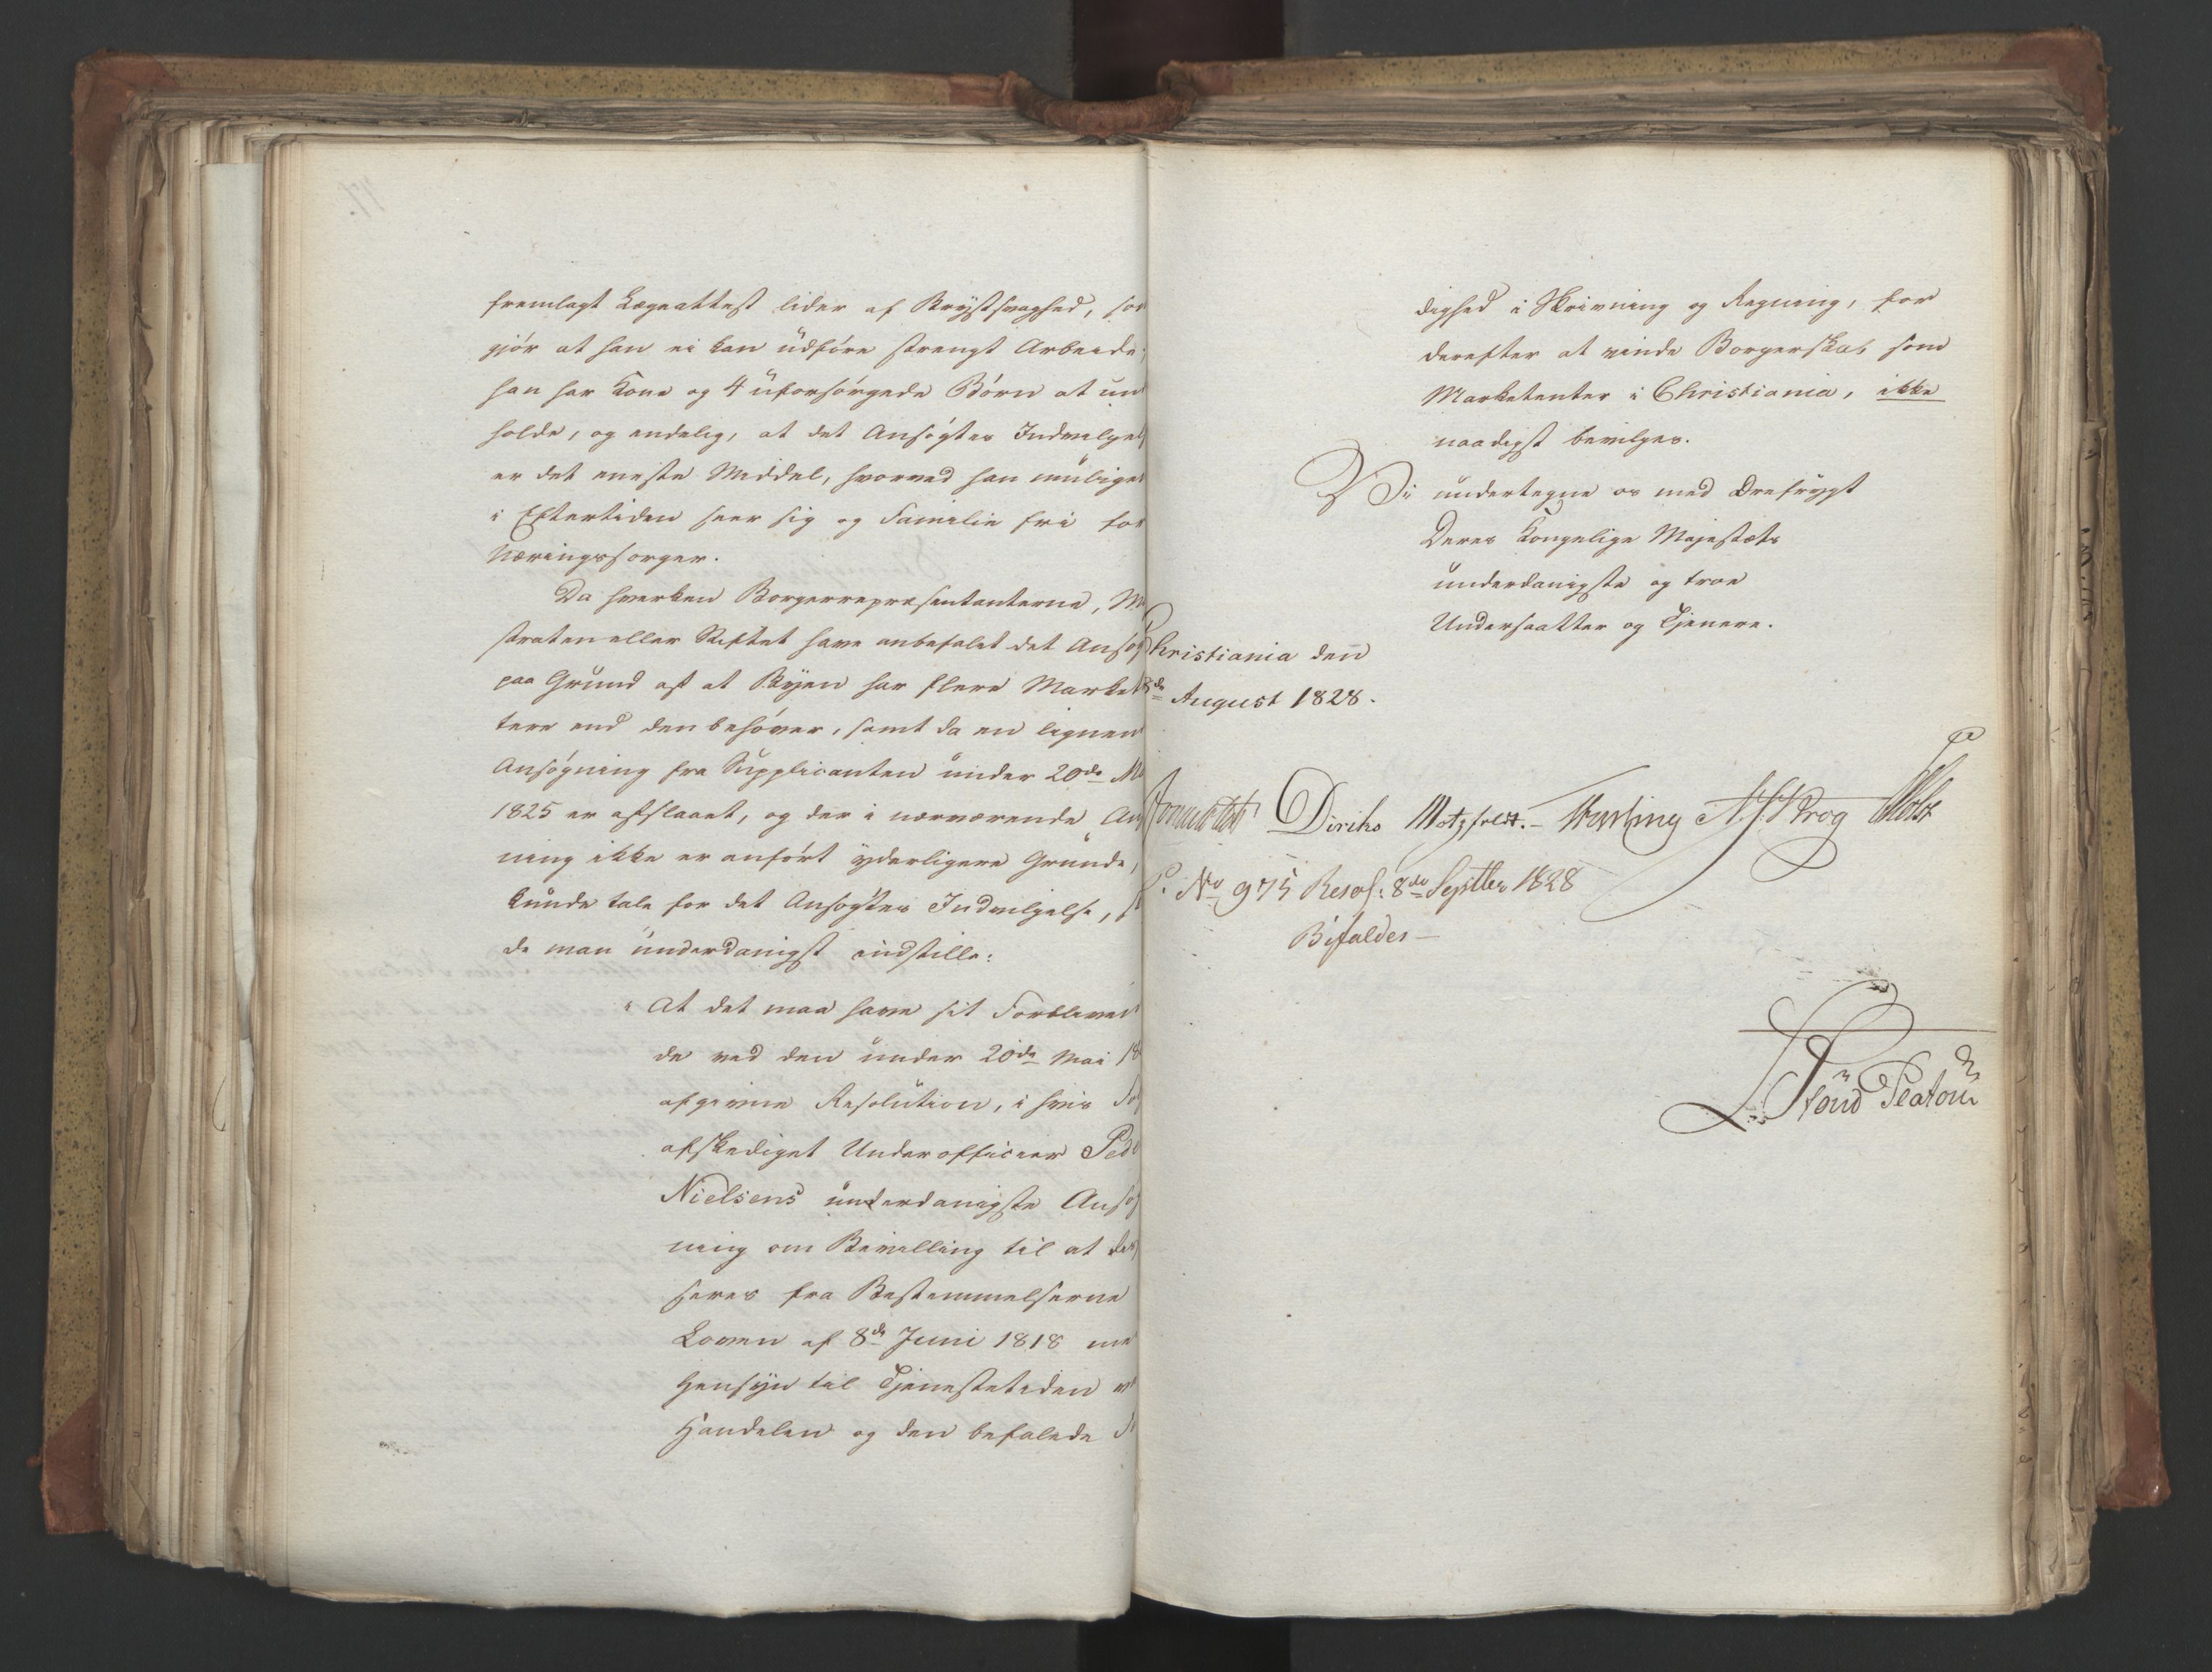 fremlagt Lægeattest lider af Brystsvaghed, som
gjør at han ei kan udføre strengt Arbeide;
han har Kone og 4 uforsørgede Børn at un
holde, og endelig, at det Ansøgtes Indvilgels
er det eneste Middel, hvorved han muligen
i Eftertiden seer sig og Familie fri for
Næringssorger.
Da hverken Borgerrepræsentanterne, Ma
straten eller Stiftet have anbefalet det Ansøg
paa Grund af at Byen har flere Market
tere end den behøver, samt da en lignen
Ansøgning fra Supplicanten under 20de Ma
1825 er afslaaet, og der i nærværende An
ning ikke er anført yderligere Grunde,
kunde tale for det Ansøgtes Indvilgelse,
de man underdanigst indstille:
"At det maa have sit Forblivend
de ved den under 20de Mai 18
afgivne Resolution, i hvis Føl
afskediget Underofficeer Pede
Nielsens underdanigste Ansøg
ning om Bevilling til at dis
seres fra Bestemmelserne
Loven af 8de Juni 1818 me
Hensyn til Tjenestetiden v
Handelen og den befalede
dighed i Skrivning og Regning, for
derefter at vinde Borgerskab som
Marketenter i Christiania, ikke
naadigst bevilges.
Vi undertegne os med Ærefrygt
Deres Kongelige Majestæts
underdanigste og troe
Undersaatter og Tjenere.
Christiania den
de August 1828.
Diriks Motzfeldt. Krog Holst
No 975 Resol: 8de Septbr 1828
Bifaldes